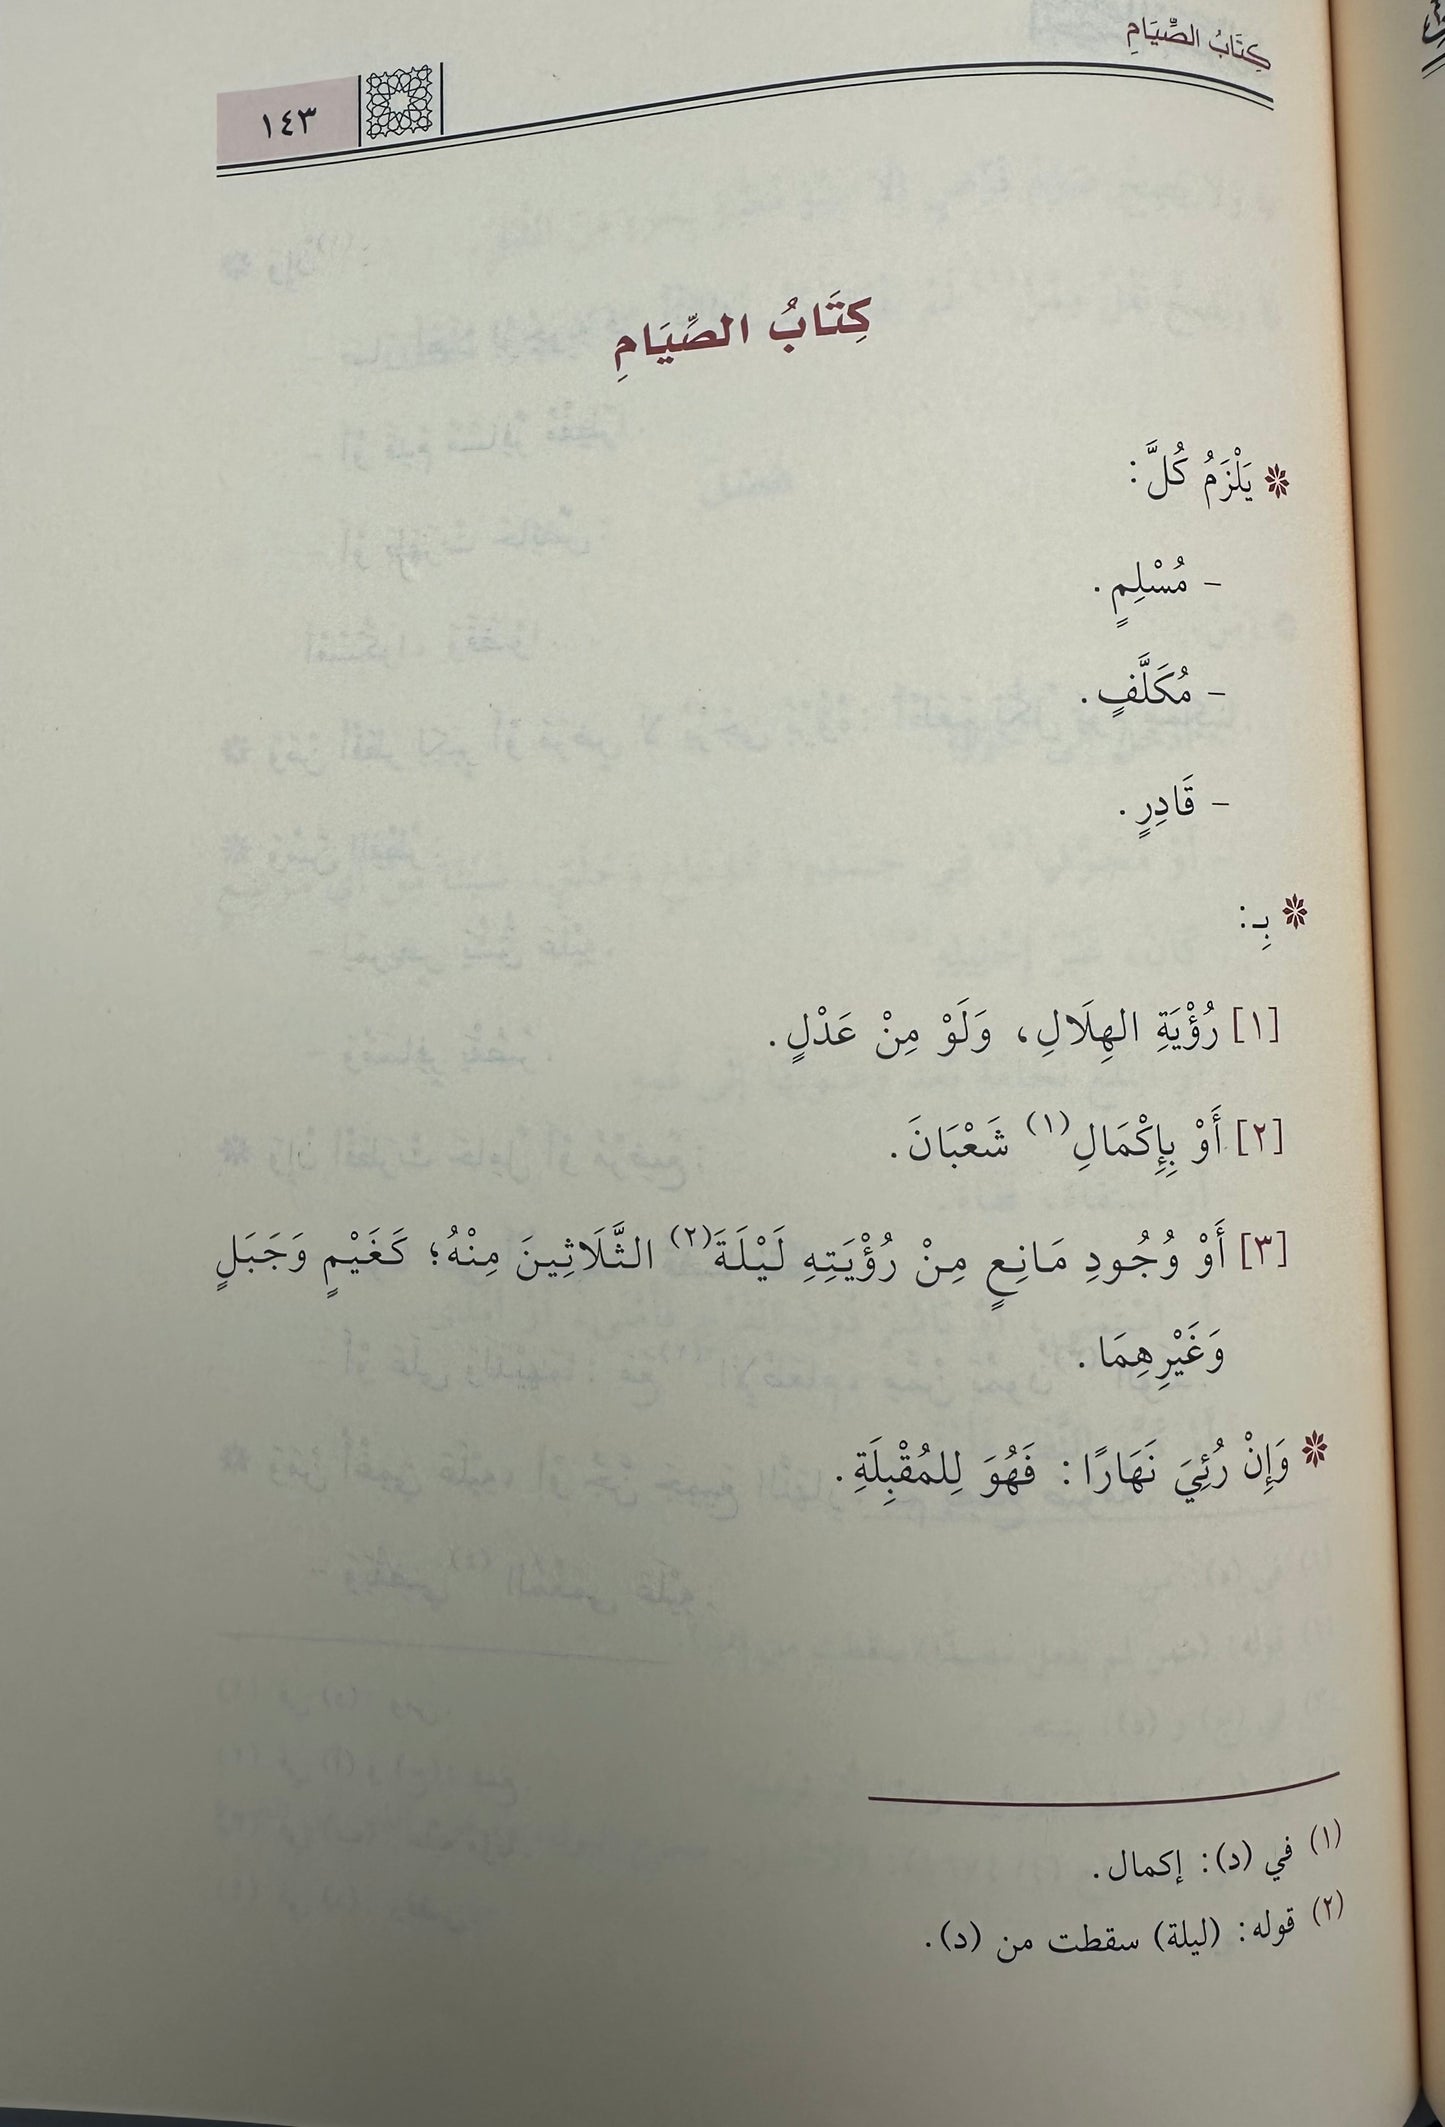 كِتَابُ الصِّيَامِ
١٤٣
كِتَابُ الصِّيَامِ
يَلْزَمُ كُلَّ:
- مُسْلِمٍ.
- مُكَلَّفٍ.
- قَادِرٍ.
بِـ:
[١] رُؤْيَةِ الهِلَالِ، وَلَوْ مِنْ عَدْلٍ.
[٢] أَوْ بِإِكْمَالِ(١) شَعْبَانَ.
[٣] أَوْ وُجُودِ مَانِعٍ مِنْ رُؤْيَتِهِ لَيْلَةَ(٢) الثَّلَاثِينَ مِنْهُ؛ كَغَيْمٍ وَجَبَلٍ
وَغَيْرِهِمَا.
وَإِنْ رُئِيَ نَهَارًا: فَهُوَ لِلمُقْبِلَةِ.
(١) في (د): إكمال.
(٢) قوله: (ليلة) سقطت من (د).